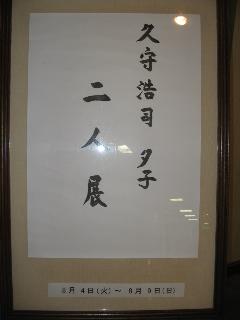 久守浩司 夕子
二人展
8月 4日(火)～ 8月 9日(日)